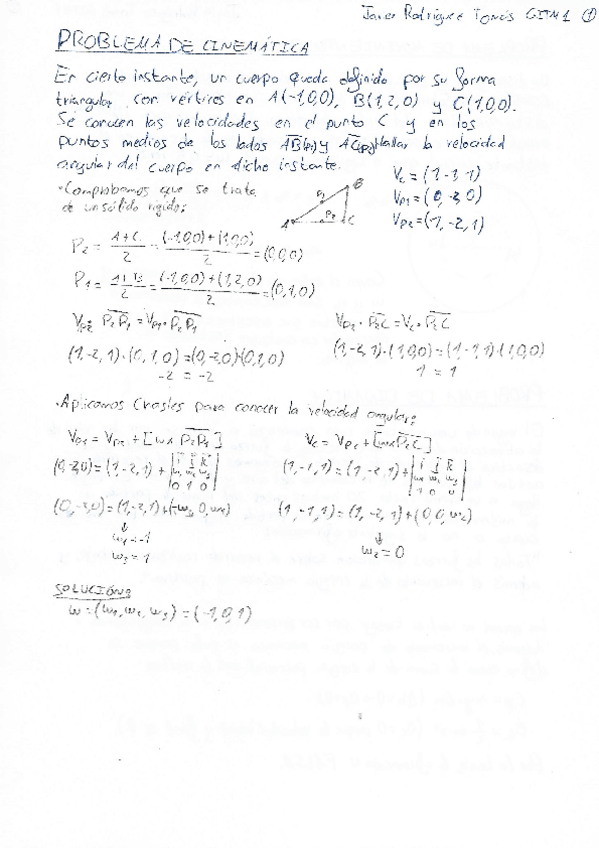 Javier Rodríguez Tomás GITM1 ①
PROBLEMA DE CINEMÁTICA
En cierto instante, un cuerpo queda definido por su forma
triangular con vértices en A(-1,0,0), B(1,2,0) y C(1,0,0).
Se conocen las velocidades en el punto C y en los
puntos medios de los lados AB(P1) y AC(P2). Hallar la velocidad
angular del cuerpo en dicho instante.
·Comprobamos que se trata
de un sólido rígido:
A B C P1 P2
Vc = (1,-1,1)
VP1 = (0,-2,0)
VP2 = (1,-2,1)
P2 = A+C/2 = (-1,0,0)+(1,0,0)/2 = (0,0,0)
P1 = A+B/2 = (-1,0,0)+(1,2,0)/2 = (0,1,0)
VP2 · P2P1 = VP1 · P2P1
(1,-2,1)·(0,1,0) = (0,-2,0)·(0,1,0)
-2 = -2
VP2 · P2C = Vc · P2C
(1,-2,1)·(1,0,0) = (1,-1,1)·(1,0,0)
1 = 1
·Aplicamos Chasles para conocer la velocidad angular:
VP1 = VP2 + [w x P2P1]
(0,-2,0) = (1,-2,1) + | i j k w1 w2 w3 0 1 0 |
(0,-2,0) = (1,-2,1) + (-w3, 0, w1)
↓
w1 = -1
w3 = 1
Vc = VP2 + [w x P2C]
(1,-1,1) = (1,-2,1) + | i j k w1 w2 w3 1 0 0 |
(1,-1,1) = (1,-2,1) + (0,0,w2)
↓
w2 = 0
SOLUCIÓN:
w = (w1, w2, w3) = (-1,0,1)